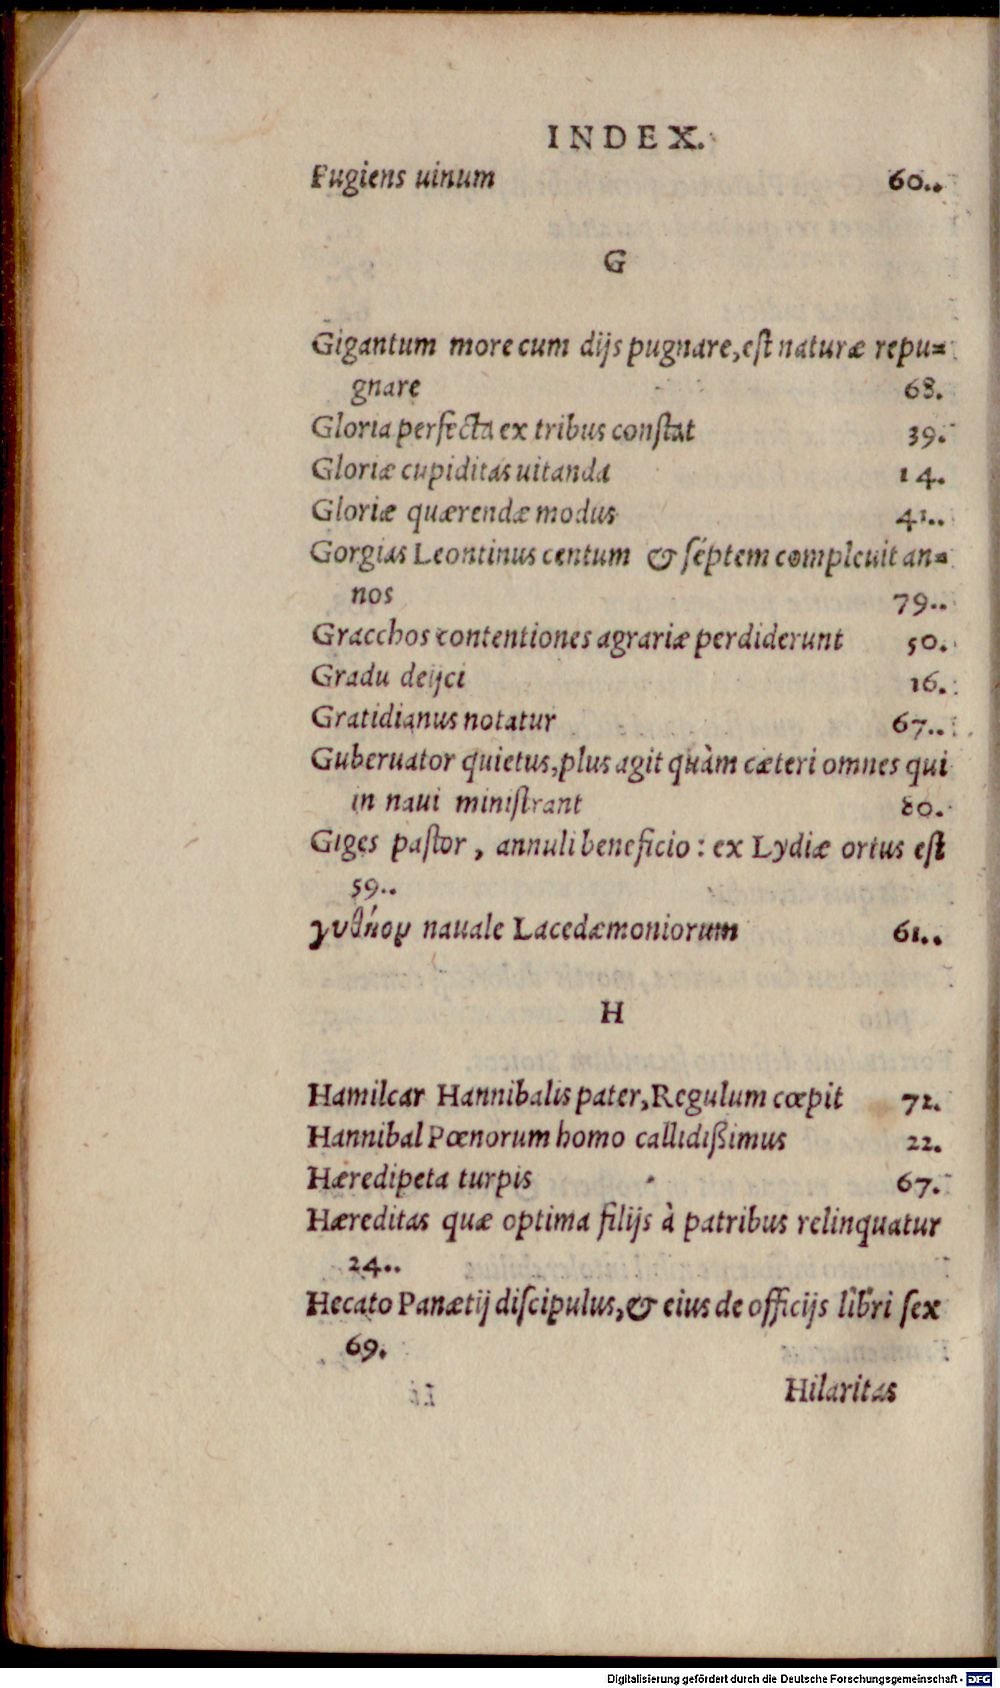 INDEX.
Fugiens uinum 60..
G
Gigantum more cum dijs pugnare, est naturæ repu=
gnare 68.
Gloria perfecta ex tribus constat 39.
Gloriæ cupiditas uitanda 14.
Gloriæ quærendæ modus 41..
Gorgias Leontinus centum & septem compleuit an=
nos 79..
Gracchos contentiones agrariæ perdiderunt 50.
Gradu deijci 16.
Gratidianus notatur 67..
Gubernator quietus, plus agit quàm cæteri omnes qui
in naui ministrant 80.
Giges pastor, annuli beneficio: ex Lydiæ ortus est
59..
γυθήου nauale Lacedæmoniorum 61..
H
Hamilcar Hannibalis pater, Regulum cœpit 72.
Hannibal Pœnorum homo callidißimus 22.
Hæredipeta turpis 67.
Hæreditas quæ optima filijs à patribus relinquatur
24..
Hecato Panætij discipulus, & eius de officijs libri sex
69.
Hilaritas
Digitalisierung gefördert durch die Deutsche Forschungsgemeinschaft - DFG